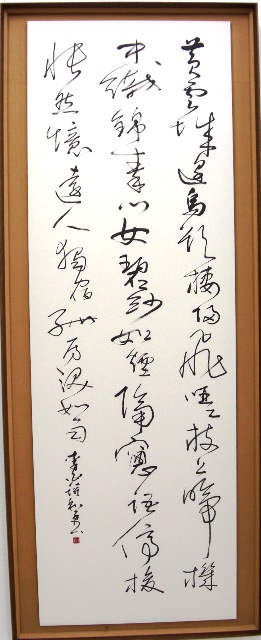 黄雲城邊烏欲棲歸飛啞々枝上啼機
中織錦秦川女碧紗如煙隔窓語停梭
悵然憶遠人獨宿孤房淚如雨 李白詩